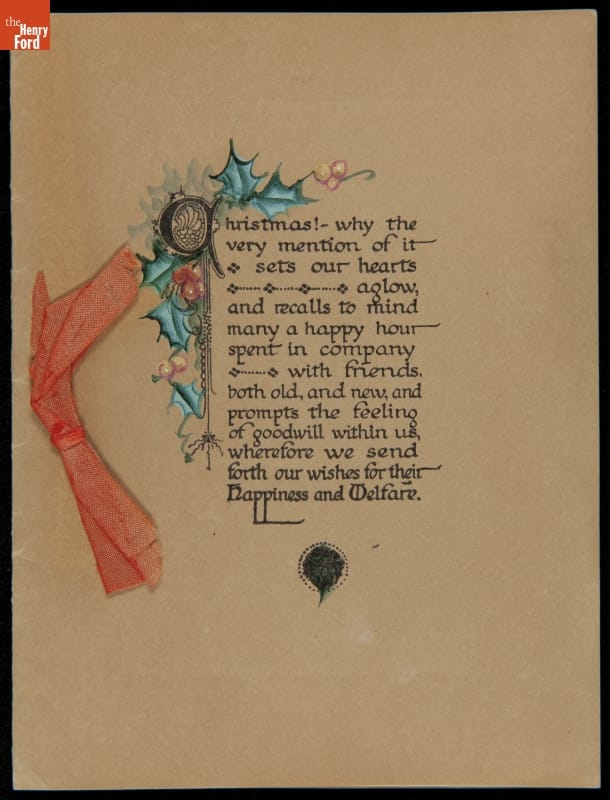 the
Henry
Ford
Christmas!- why the
very mention of it
sets our hearts
aglow,
and recalls to mind
many a happy hour
spent in company
with friends,
both old, and new, and
prompts the feeling
of goodwill within us,
wherefore we send
forth our wishes for their
Happiness and Welfare.